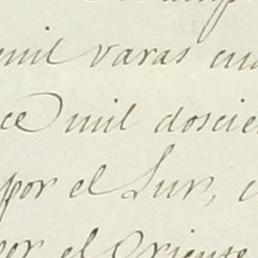 mil varas cua
ce mil doscie
por el Sur, c
por el Oriente